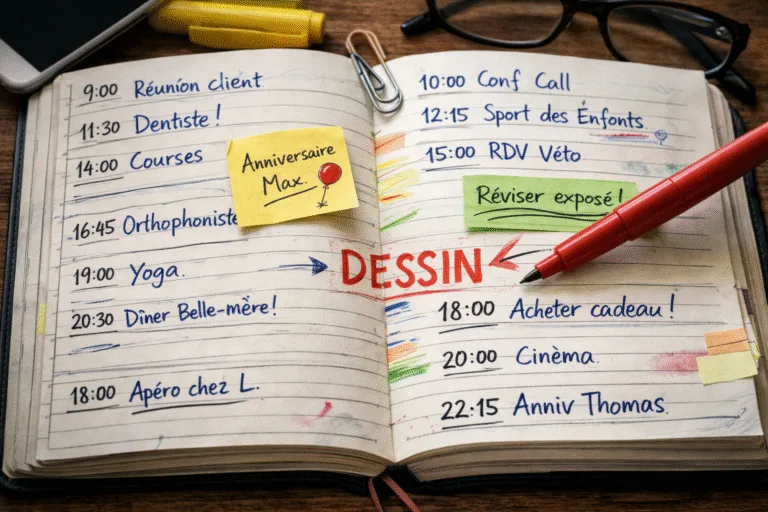 9:00 Réunion client
11:30 Dentiste !
14:00 Courses
Anniversaire
Max.
16:45 Orthophoniste
19:00 Yoga.
20:30 Dîner Belle-mère!
18:00 Apéro chez L.
DESSIN
10:00 Conf Call
12:15 Sport des Énfonts
15:00 RDV Véto
Réviser exposé !
18:00 Acheter cadeau !
20:00 Cinèma
22:15 Anniv Thomas.